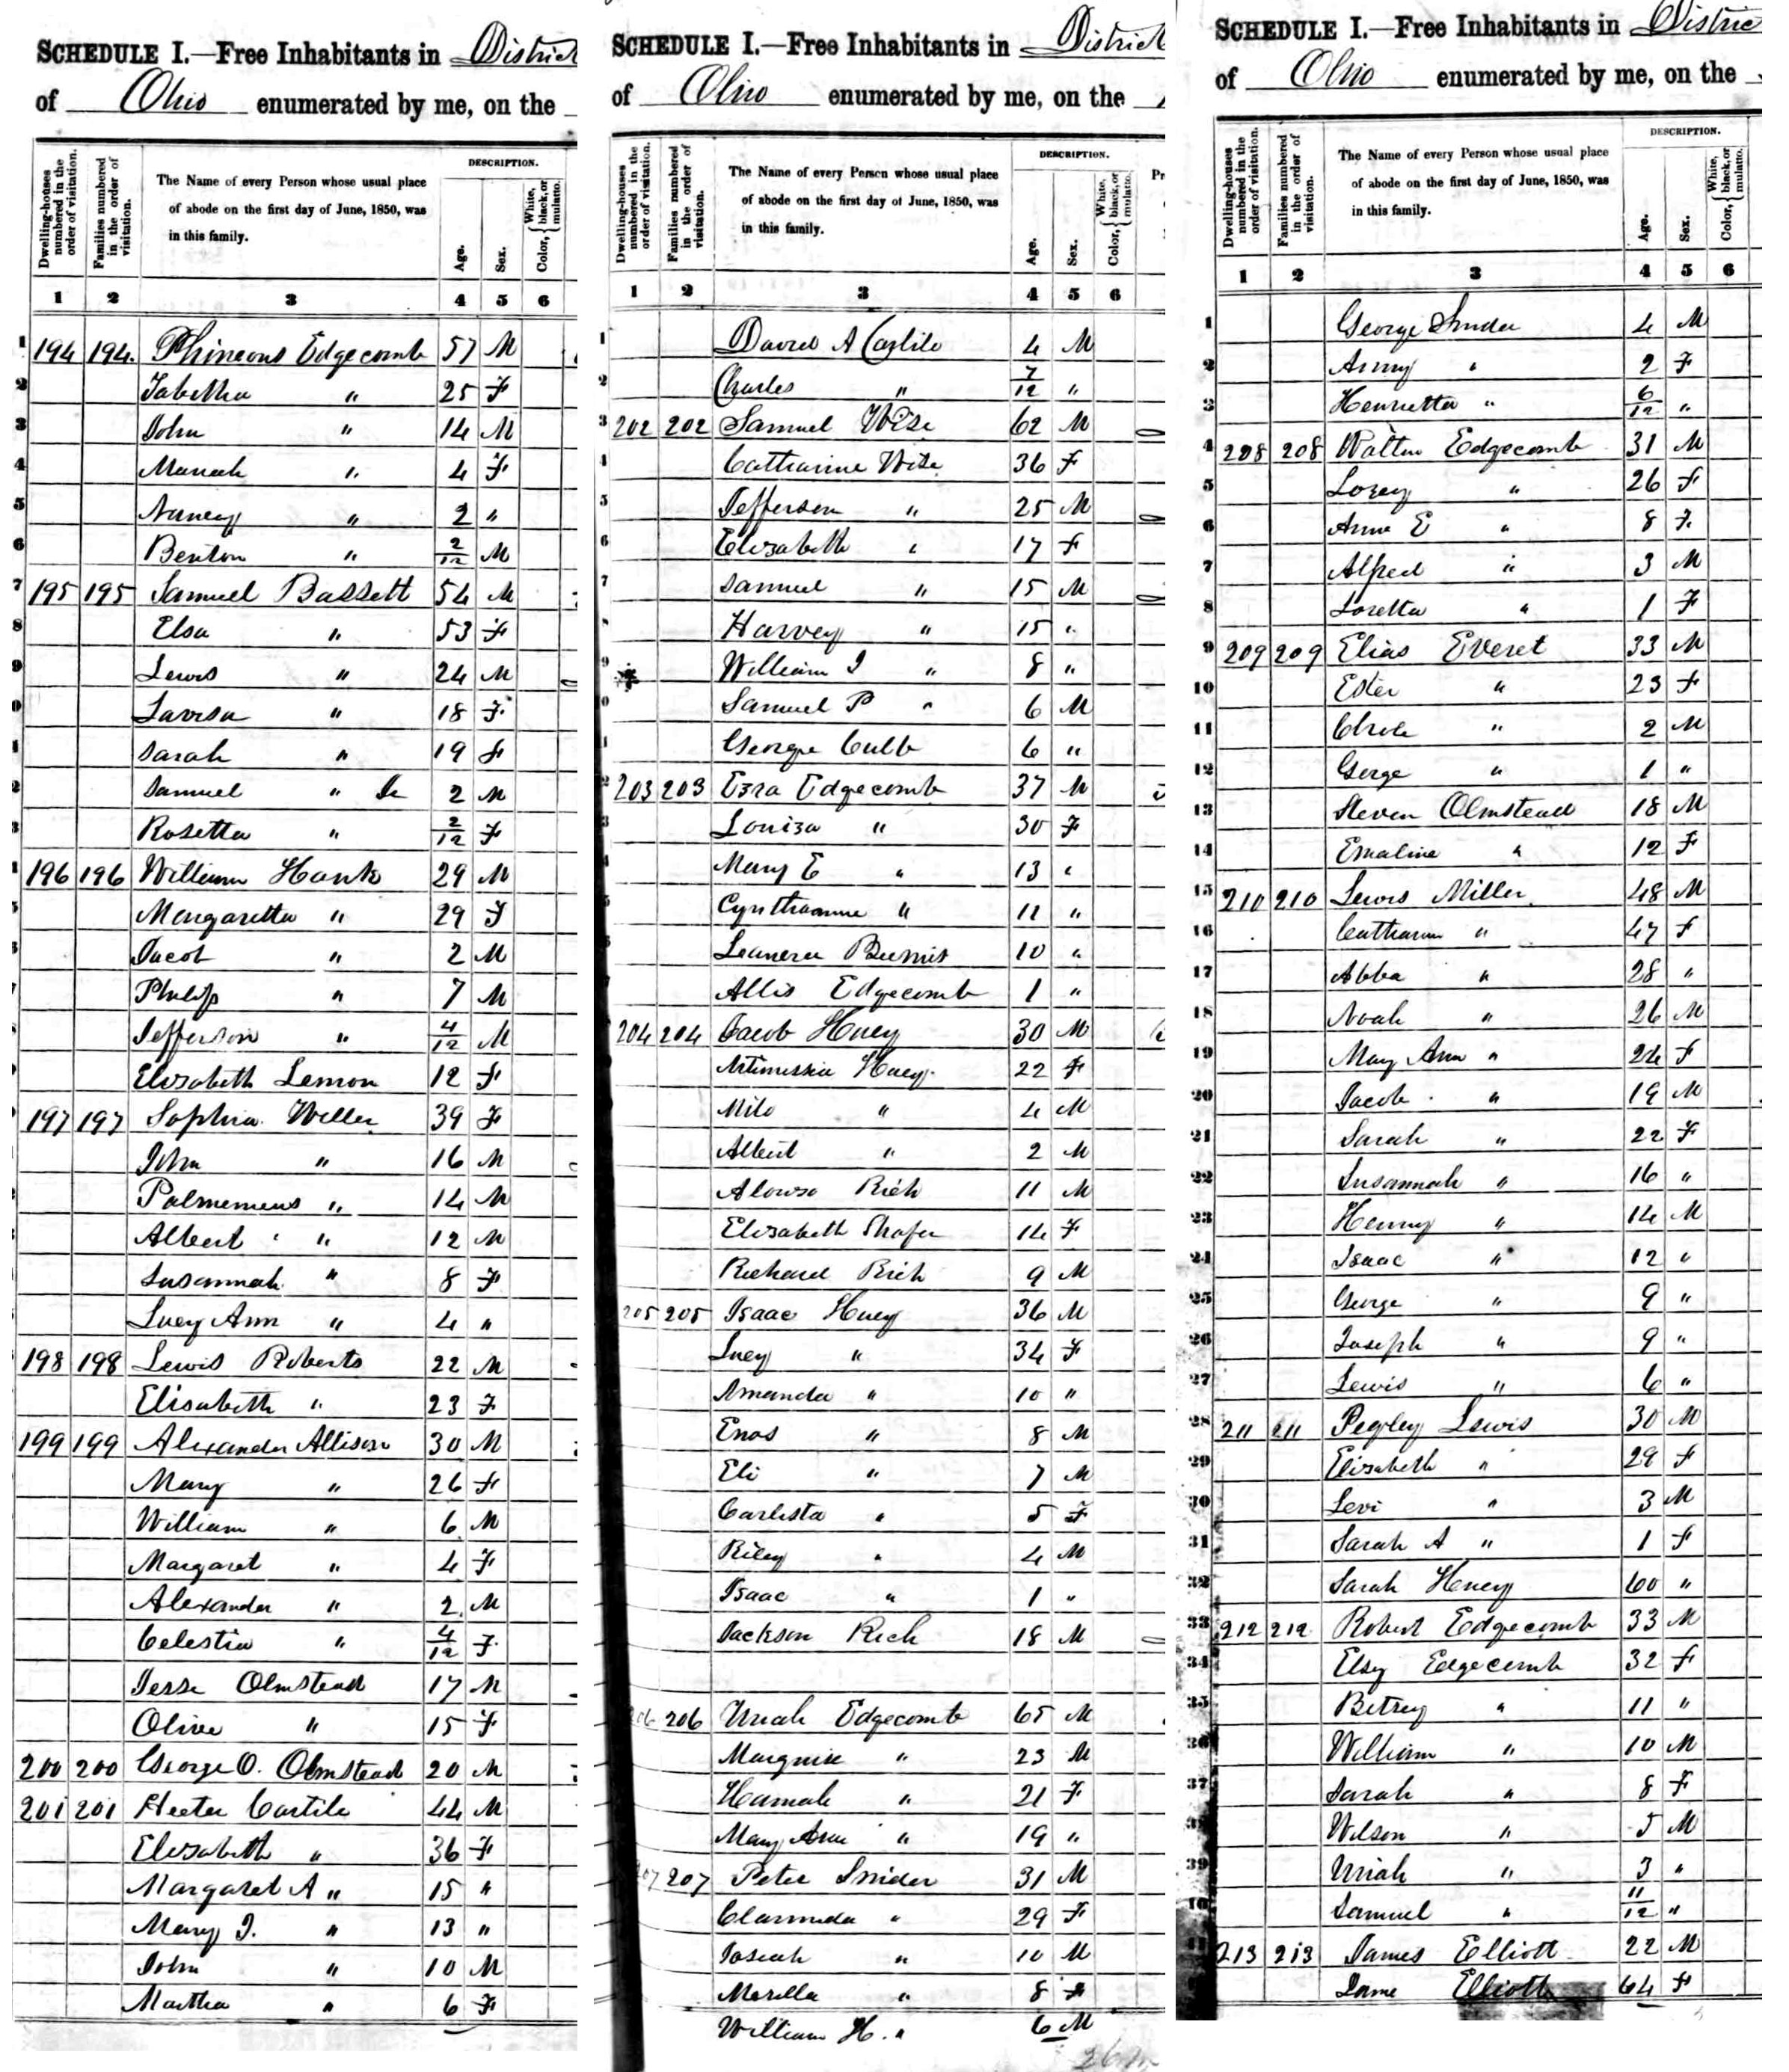 SCHEDULE I.—Free Inhabitants in District
of Ohio enumerated by me, on the
Dwelling-houses numbered in the order of visitation.
Families numbered in the order of visitation.
The Name of every Person whose usual place of abode on the first day of June, 1850, was in this family.
DESCRIPTION.
Age.
Sex.
Color, { White, black, or mulatto.
1 2 3 4 5 6
1 194 194 Phineons Edgecomb 57 M
2 Tabetha " 25 F
3 John " 14 M
4 Mariah " 4 F
5 Nancy " 2 "
6 Benton " 2/12 M
7 195 195 Samuel Bassett 54 M
8 Elsa " 53 F
9 Lewis " 24 M
0 Lavisa " 18 F
1 Sarah " 19 F
2 Samuel " 2 M
3 Rosetta " 2/12 F
196 196 William Hank 29 M
Margaretta " 29 F
Jacob " 2 M
Philip " 7 M
Jefferson " 4/12 M
Elizabeth Lemon 12 F
197 197 Sophia Weller 39 F
John " 16 M
Palmemeus " 14 M
Albert " 12 M
Susannah " 8 F
Lucy Ann " 4 "
198 198 Lewis Roberts 22 M
Elisabeth " 23 F
199 199 Alexander Allison 30 M
Mary " 26 F
William " 6 M
Margaret " 4 F
Alexander " 2 M
Celestia " 4/12 F
Jesse Olmstead 17 M
Olive " 15 F
200 200 George O. Olmstead 20 M
201 201 Hector Carlile 44 M
Elizabeth " 36 F
Margaret A " 15 "
Mary J. " 13 "
John " 10 M
Martha " 6 F
SCHEDULE I.—Free Inhabitants in District
of Ohio enumerated by me, on the
Dwelling-houses numbered in the order of visitation.
Families numbered in the order of visitation.
The Name of every Person whose usual place of abode on the first day of June, 1850, was in this family.
DESCRIPTION.
Age.
Sex.
Color, { White, black, or mulatto.
Pr
1 2 3 4 5 6
1 David A Carlile 4 M
2 Charles " 7/12 "
3 202 202 Samuel Wise 62 M
4 Catharine Wise 36 F
5 Jefferson " 25 M
6 Elizabeth " 17 F
7 Samuel " 15 M
Harvey " 15 "
9 William J " 8 "
0 Samuel P " 6 M
1 George Culb 6 "
2 203 203 Ezra Edgecomb 37 M
3 Louiza " 30 F
Mary E " 13 "
Cynthianne " 11 "
Leanera Bemis 10 "
Allis Edgecomb 1 "
204 204 Jacob Huey 30 M
Artimissia Huey 22 F
Milo " 4 M
Albert " 2 M
Alonzo Rich 11 M
Elizabeth Shafer 14 F
Richard Rich 9 M
205 205 Isaac Huey 36 M
Lucy " 34 F
Amanda " 10 "
Enos " 8 M
Eli " 7 M
Carlista " 5 F
Riley " 4 M
Isaac " 1 "
Jackson Rich 18 M
206 206 Uriah Edgecomb 65 M
Marquise " 23 M
Hannah " 21 F
Mary Ann " 19 "
207 207 Peter Snider 31 M
Clarinda " 29 F
Josiah " 10 M
Marilla " 8 F
William H. " 6 M
SCHEDULE I.—Free Inhabitants in Distric
of Ohio enumerated by me, on the
Dwelling-houses numbered in the order of visitation.
Families numbered in the order of visitation.
The Name of every Person whose usual place of abode on the first day of June, 1850, was in this family.
DESCRIPTION.
Age.
Sex.
Color, { White, black, or mulatto.
1 2 3 4 5 6
1 George Snider 4 M
2 Anny " 2 F
3 Henrietta " 6/12 "
4 208 208 Walter Edgecomb 31 M
5 Lozey " 26 F
6 Anne E " 8 F
7 Alfred " 3 M
8 Loretta " 1 F
9 209 209 Elias Everet 33 M
10 Ester " 23 F
11 " 2 M
12 Gerge " 1 "
13 Steven Olmstead 18 M
14 Emaline " 12 F
15 210 210 Lewis Miller 48 M
16 Catharin " 47 F
17 Abba " 28 "
18 Noah " 26 M
19 May Ann " 24 F
20 Jacob " 19 M
21 Sarah " 22 F
22 Susannah " 16 "
23 Henry " 14 M
24 Isaac " 12 "
25 George " 9 "
26 Joseph " 9 "
27 Lewis " 6 "
28 211 211 Pegley Lewis 30 M
29 Elizabeth " 29 F
30 Levi " 3 M
31 Sarah A " 1 F
32 Sarah Huey 60 "
33 212 212 Robert Edgecomb 33 M
34 Elsy Edgecomb 32 F
35 Betsey " 11 "
36 William " 10 M
37 Sarah " 8 F
38 Wilson " 5 M
39 Uriah " 3 "
40 Samuel " 11/12 "
41 213 213 James Elliott 22 M
Jame Elliott 64 F